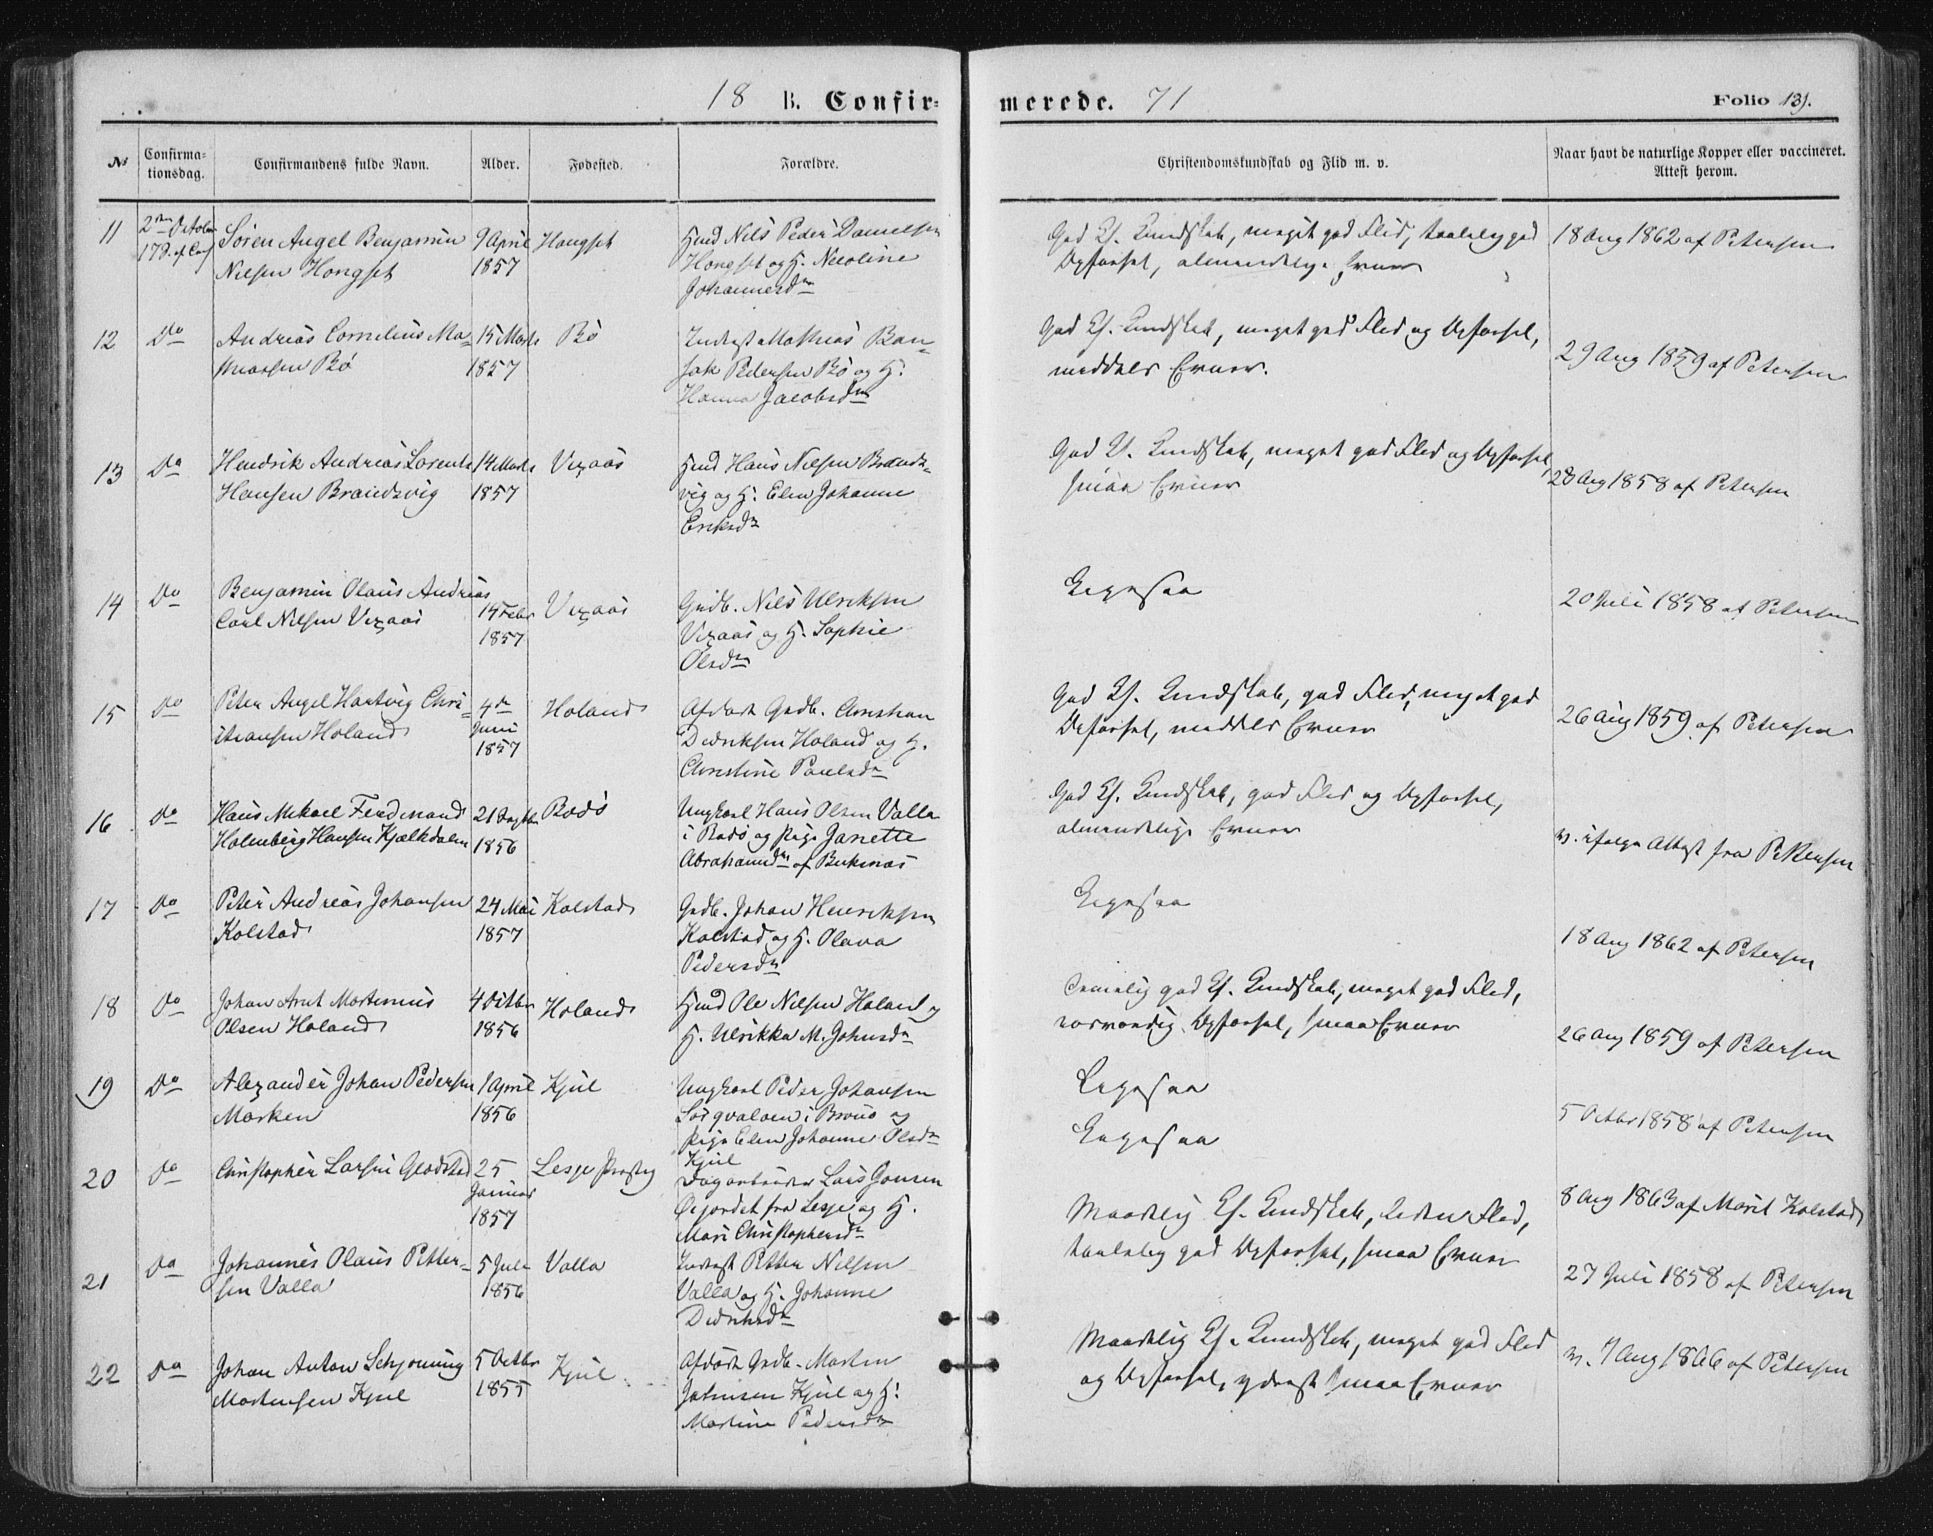 18 B. Confirmerede. 71
Folio 131.
No
Confirmationsdag.
Confirmandens fulde Navn.
Alder.
Fødested.
Forældre.
Christendomskundskab og Flid m. v.
Naar havt de naturlige Kopper eller vaccineret.
Attest herom.
11
2den October
Søren Angel Benjamin
Nilsen Hongset
9 April
1857
Hongset
Nils Peder Danielsen
Hongset og H. Nicoline
Johannesdr
God Kundskab, meget god Flid, taalelig god
Opførsel, almindelige Evner
18 Aug 1862 af Petersen
12
Do
Andreas Cornelius Ma-
thiassen Bö
15 Marts
1857
Bö
Inderst Mathias Ban-
Pedersen Bö og H.
Hanna Jacobsdr
God Kundskab, meget god Flid og Opførsel,
middels Evner.
29 Aug 1859 af Petersen
13
Do
Hendrik Andreas Lorents
Hansen Brandsvig
14 Marts
1857
Vixaas
Hans Nilsen Brands-
vig og H. Elen Johanne
Eriksdr
God Kundskab, meget god Flid og Opførsel,
smaa Evner
28 Aug 1858 af Petersen
14
Do
Benjamin Olaus Andreas
Carl Nilsen Vixaas
14 Febr
1857
Vixaas
Grdb. Nils Ulriksen
Vixaas og H. Sophie
Olsdr
Ligesaa
20 Juli 1858 af Petersen
15
Do
Peter Angel Hartvig Chri-
stiansen Holand
4de
Juni
1857
Holand
Afdøde Grdb. Christian
Didriksen Holand og H.
Christine Paulsdr
God Kundskab, god Flid, meget god
Opførsel, middels Evner
26 Aug 1859 af Petersen
16
Do
Hans Mikael Ferdinand
Holmberg Hansen Kjælkdalen
21 Septbr
1856
Bodö
Ungkarl Hans Olsen Valla
i Bodö og Pige Janette
Abrahamsdr af
God Kundskab, god Flid og Opførsel,
almindelige Evner
v. ifølge Attest fra Pettersen
17
Do
Peter Andreas Johansen
Kolstad
24 Mai
1857
Kolstad
Grdb. Johan Henriksen
Kolstad og H. Olava
Pedersdr
Ligesaa
18 Aug 1862 af Petersen
18
Do
Johan Arnt Martinius
Olsen Holand
4 Octbr
1856
Holand
Ole Nilsen Holand og
H. Ulrikka M. Johnsdr
Temmelig god Kundskab, meget god Flid,
Opførsel, smaa Evner
26 Aug 1859 af Petersen
19
Do
Alexander Johan Pedersen
Marken
1 April
1856
Kjul
Ungkarl Peder Johansen
i Brönö og
Pige Elen Johanne Olsdr
Kjul
Ligesaa
5 Octbr 1858 af Petersen
20
Do
Christopher Larsen Gladstad
25
Januar
1857
Lesje Præsteg
Dagarbeider Lars Jonsen
Öijordet fra Lesje og H.
Mari Christophersdr
Ligesaa
8 Aug 1863 af Marit Kolstad
21
Do
Johannes Olaus Petter-
sen Valla
5 Juli
1856
Valla
Inderst Petter Nilsen
Valla og H. Johanne
Didriksdr
Maadelig Kundskab, liden Flid,
taalelig god Opførsel, smaa Evner
27 Juli 1858 af Petersen
22
Do
Johan Anton Schjönning
Mortensen Kjul
5 Octbr
1855
Kjul
Afdøde Grdb. Morten
Johnsen Kjul og H.
Martine Pedersdr
Maadelig Kundskab, meget god Flid
og Opførsel, yderst smaa Evner
v. 7 Aug 1866 af Petersen